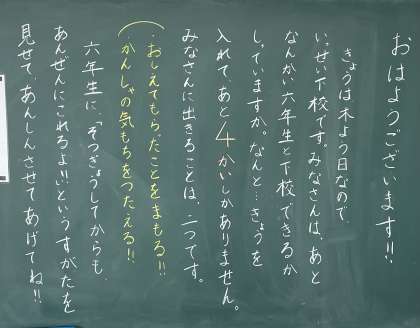 おはようございます!!
きょうは木よう日なので
いっせい下校です。みなさんは、あと
なんかい六年生と下校できるか
しっていますか。なんと…きょうを
入れて、あと4かいしかありません。
みなさんに出きることは、二つです。
・おしえてもらったことをまもる!!
・かんしゃの気もちをつたえる!!
六年生に、「そつぎょうしてからも、
あんぜんにこれるよ!!」というすがたを
見せて、あんしんさせてあげてね!!